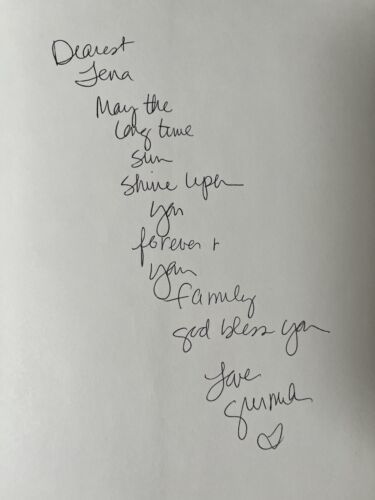 Dearest
Jena
May the
long time
sun
shine upon
you
forever +
your
family
god bless you
Love
Gurmukh